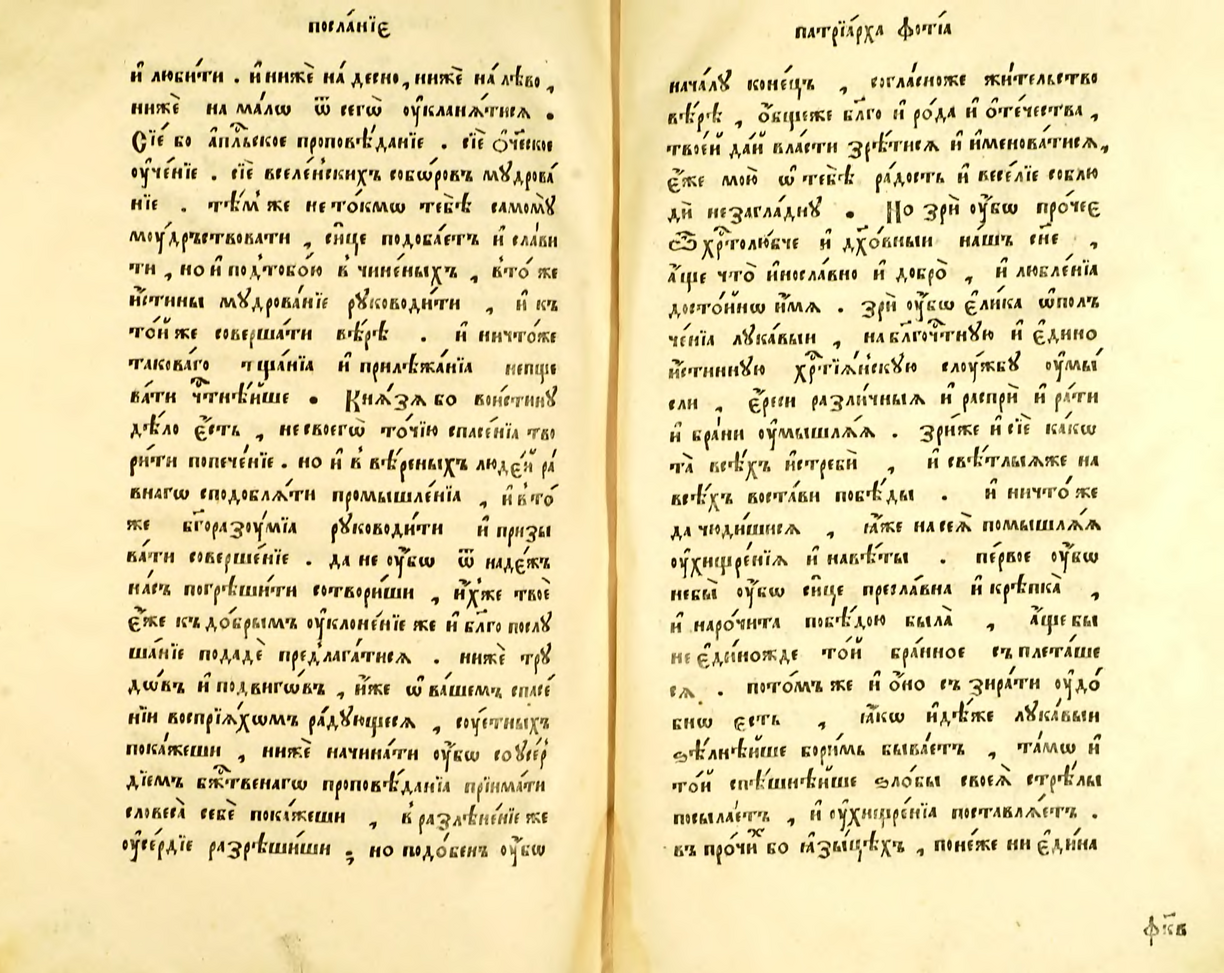 посла́нїе
и҆ люби́ти . и҆ нижѐ на́ десно , нижѐ на́ лѣво ,
нижѐ на ма́лѡ ѿ сегѡ̀ оу҆кланѧ́тисѧ .
Сїе́ бо а҆пⷭ҇льское проповѣ́данїе . сїѐ ѻ҆ч҃еское
оу҆че́нїе . сїѐ вселе́нскихъ собѡ́ровъ мꙋдрова́
нїе . тѣ́м же не то́кмѡ тебѣ̀ самомꙋ̀
моу́дръствовати , си́це подоба́етъ и҆ слави
ти , но и҆ под̾тобо́ю в̾ чине́ныхъ , в̾то́ же
и҆́стины мꙋдрова́нїе рꙋководи́ти , и҆ къ
то́й же соверша́ти вѣ́рѣ . и҆ ничто́же
такова́го тща́нїа и҆ прилѣжа́нїа непще
ва́ти чⷭ҇тнѣ́йше . Кнѧ́зѧ бо вои́стинꙋ
дѣ́ло є҆́сть , не своегѡ̀ то́чїю спасе́нїа тво
ри́ти попече́нїе . но и҆ в̾ вѣ́реныхъ люде́й ра́
внагѡ сподоблѧ́ти промышле́нїа , и҆ в̾то́
же бг҃оразоу́мїа рꙋководи́ти и҆ призы
ва́ти соверше́нїе . да не оу҆́бѡ ѿ наде́жъ
на́съ погрѣши́ти сотвори́ши , и҆́хже твоѐ
є҆́же къ до́брымъ оу҆клоне́нїе же и҆ бл҃го послꙋ
ша́нїе подадѐ предлага́тисѧ . нижѐ трꙋ
дѡ́въ и҆ по́двигѡвъ , и҆́же ѡ҆ ва́шемъ спасе́
нїи воспрїѧ́хомъ ра́дꙋющесѧ , соу́етныхъ
пока́жеши , нижѐ начина́ти оу҆́бѡ со оу҆се́р
дїемъ бжⷭ҇твенагѡ проповѣ́данїа прїима́ти
словеса̀ себѐ пока́жеши , в̾ разлѣне́нїе же
оу҆се́рдїе разрѣши́ши ; но подо́бенъ оу҆́бѡ
патрїа́рха фотїа
нача́лꙋ коне́цъ , согла́сноже жи́тельство
вѣ́рѣ , ѻ҆́бщеже бл҃го и҆ ро́да и҆ ѻ҆те́чества ,
твое́й да́й вла́сти зрѣ́тисѧ и҆ и҆менова́тисѧ ,
є҆́же мою̀ ѡ҆ тебѣ̀ ра́дость и҆ весе́лїе соблю
дѝ незагладнꙋ . Но зрѝ оу҆́бѡ про́чее
Ѽ хрⷭ҇толю́бче и҆ дх҃о́вныи на́шъ сн҃е ,
а҆́ще что̀ и҆носла́вно и҆ добро̀ , и҆ любле́нїа
досто́йнѡ и҆́мѧ . зрѝ оу҆́бѡ є҆ли́ка ѡ҆пол̾
че́нїа лꙋка́выи , на бл҃гочⷭ҇тнꙋю и҆ є҆ди́но
и҆́стиннꙋю хрⷭ҇тїѧ́нскꙋю слоу́жбꙋ оу҆мы́
сли , є҆́реси разли́чныѧ и҆ распрѝ и҆ ра́ти
и҆ бра́ни оу҆мышлѧ́ѧ . зри́же и҆ сїѐ ка́кѡ
та̀ всѣ́хъ и҆стребѝ , и҆ свѣ́тлыѧже на
всѣ́хъ воста́ви побѣ́ды . и҆ ничто́ же
да чюди́шисѧ , ꙗ҆́же на сеѧ̀ помышлѧ́ѧ
оу҆хищре́нїѧ и҆ навѣ́ты . пе́рвое оу҆́бѡ
небы̀ оу҆́бѡ си́це пресла́вна и҆ крѣпка̀ ,
и҆ наро́чита побѣ́дою была̀ , а҆́ще бы
не є҆ди́ножде то́й бра́нное съплета́ше
сѧ . пото́мъ же и҆ ѻ҆́но съзира́ти оу҆до́
бнѡ є҆сть , ꙗ҆́кѡ и҆дѣ́же лꙋка́выи
ѕѣлнѣ́йше бори́мь быва́етъ , та́мѡ и҆
то́й спѣшнѣ́йше ѕло́бы своеѧ̀ стрѣ́лы
посыла́етъ , и҆ оу҆хищре́нїа поставлѧ́етъ .
въ про́чиⷯ бо ꙗ҆зы́цѣхъ , поне́же ни є҆ди́на
фк҃в